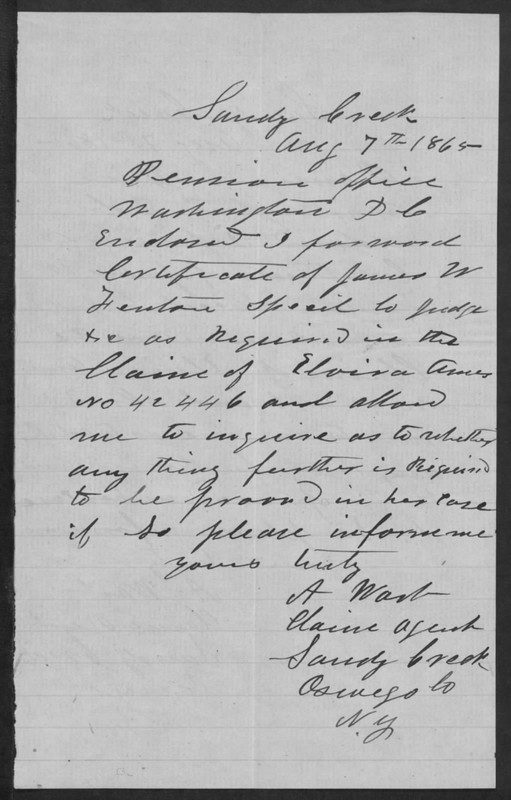 Sandy Creek
Aug 7th 1865
Pension office
Washington D C
Enclosed I forward
Certificate of James W
Fenton Special to Judge
&c as Required in the
Claim of Elvira Ames
No 42446 and allow
me to inquire as to whether
any thing further is Required
to be proved in her case
if So please inform me
yours truly
A Wart
Claim agent
Sandy Creek
Oswego Co
N.Y.